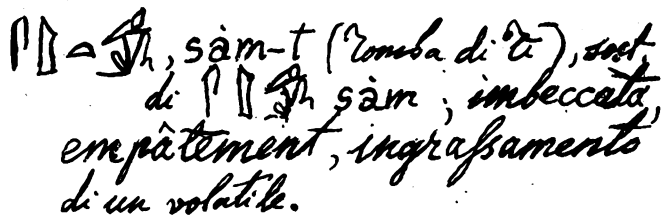 , sàm-t (Tomba di Ti), sost.
di sàm; imbeccata,
empâtement, ingrassamento
di un volatile.